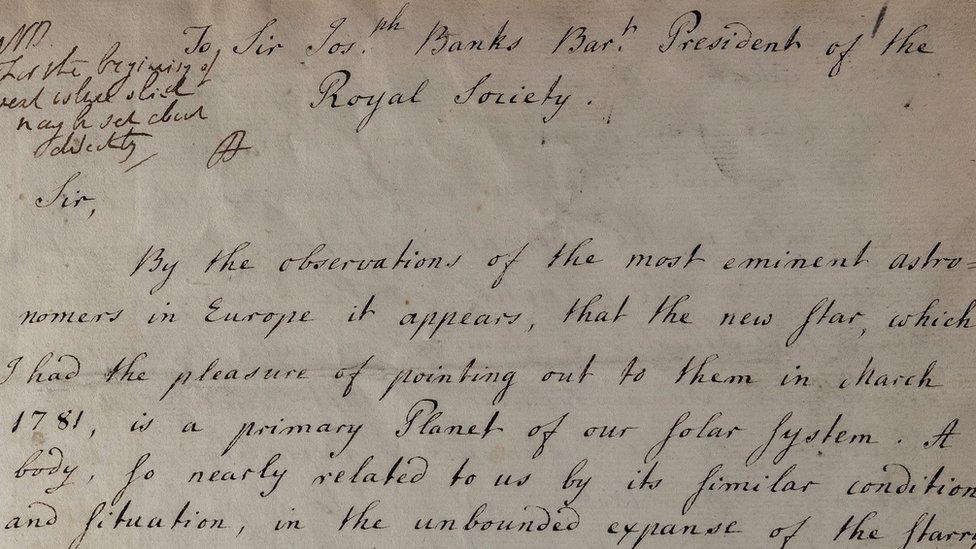 NB.
For the beginning of
may be set about
directly
To Sir Jos.ph Banks Bar.t President of the
Royal Society.
Sir,
By the observations of the most eminent astro=
nomers in Europe it appears, that the new star, which
I had the pleasure of pointing out to them in March
1781, is a primary Planet of our solar system. A
body, so nearly related to us by its similar condition
and situation, in the unbounded expanse of the starry